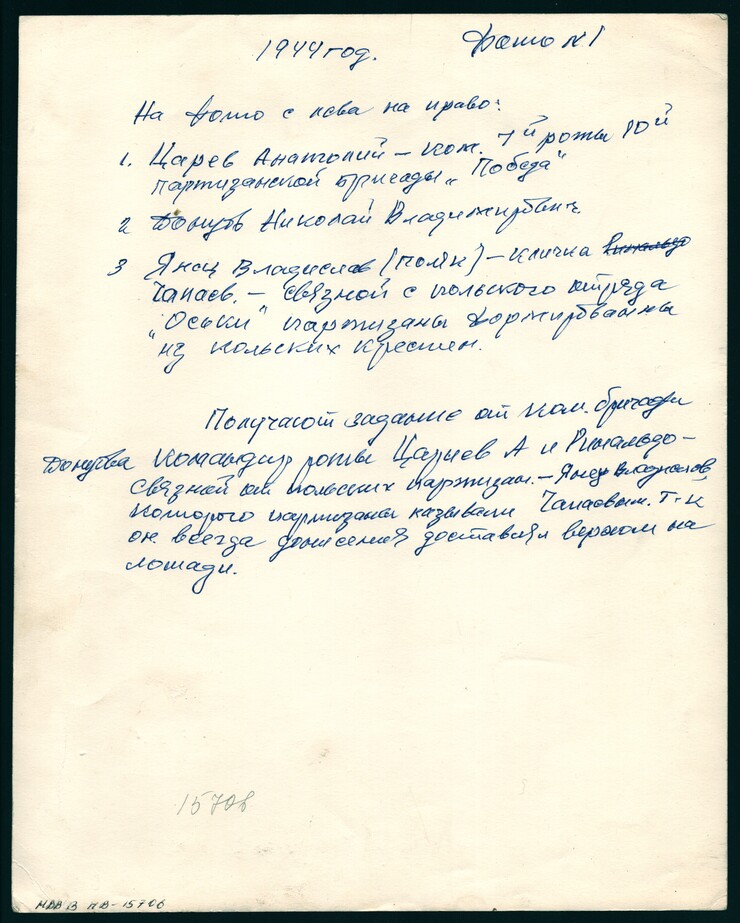 1944 год. Фото №1
На фото с лева на право:
1. Царев Анатолий – ком. 1й роты 10й
партизанской бригады „Победа"
2 Донцов Николай Владимирович
3 Янец Владислав (поляк) – кличка
Чапаев. – связной с польского отряда
„Оськи" партизаны формированны
из польских крестян.
Получают задание от ком. бригады
Донцова командир роты Царев А и Ринальдо –
связной от польских партизан. – Янец Владислав,
которого партизаны называли Чапаевым. Т-к
он всегда донесения доставлял верхом на
лошади.
15706
НВ-15706